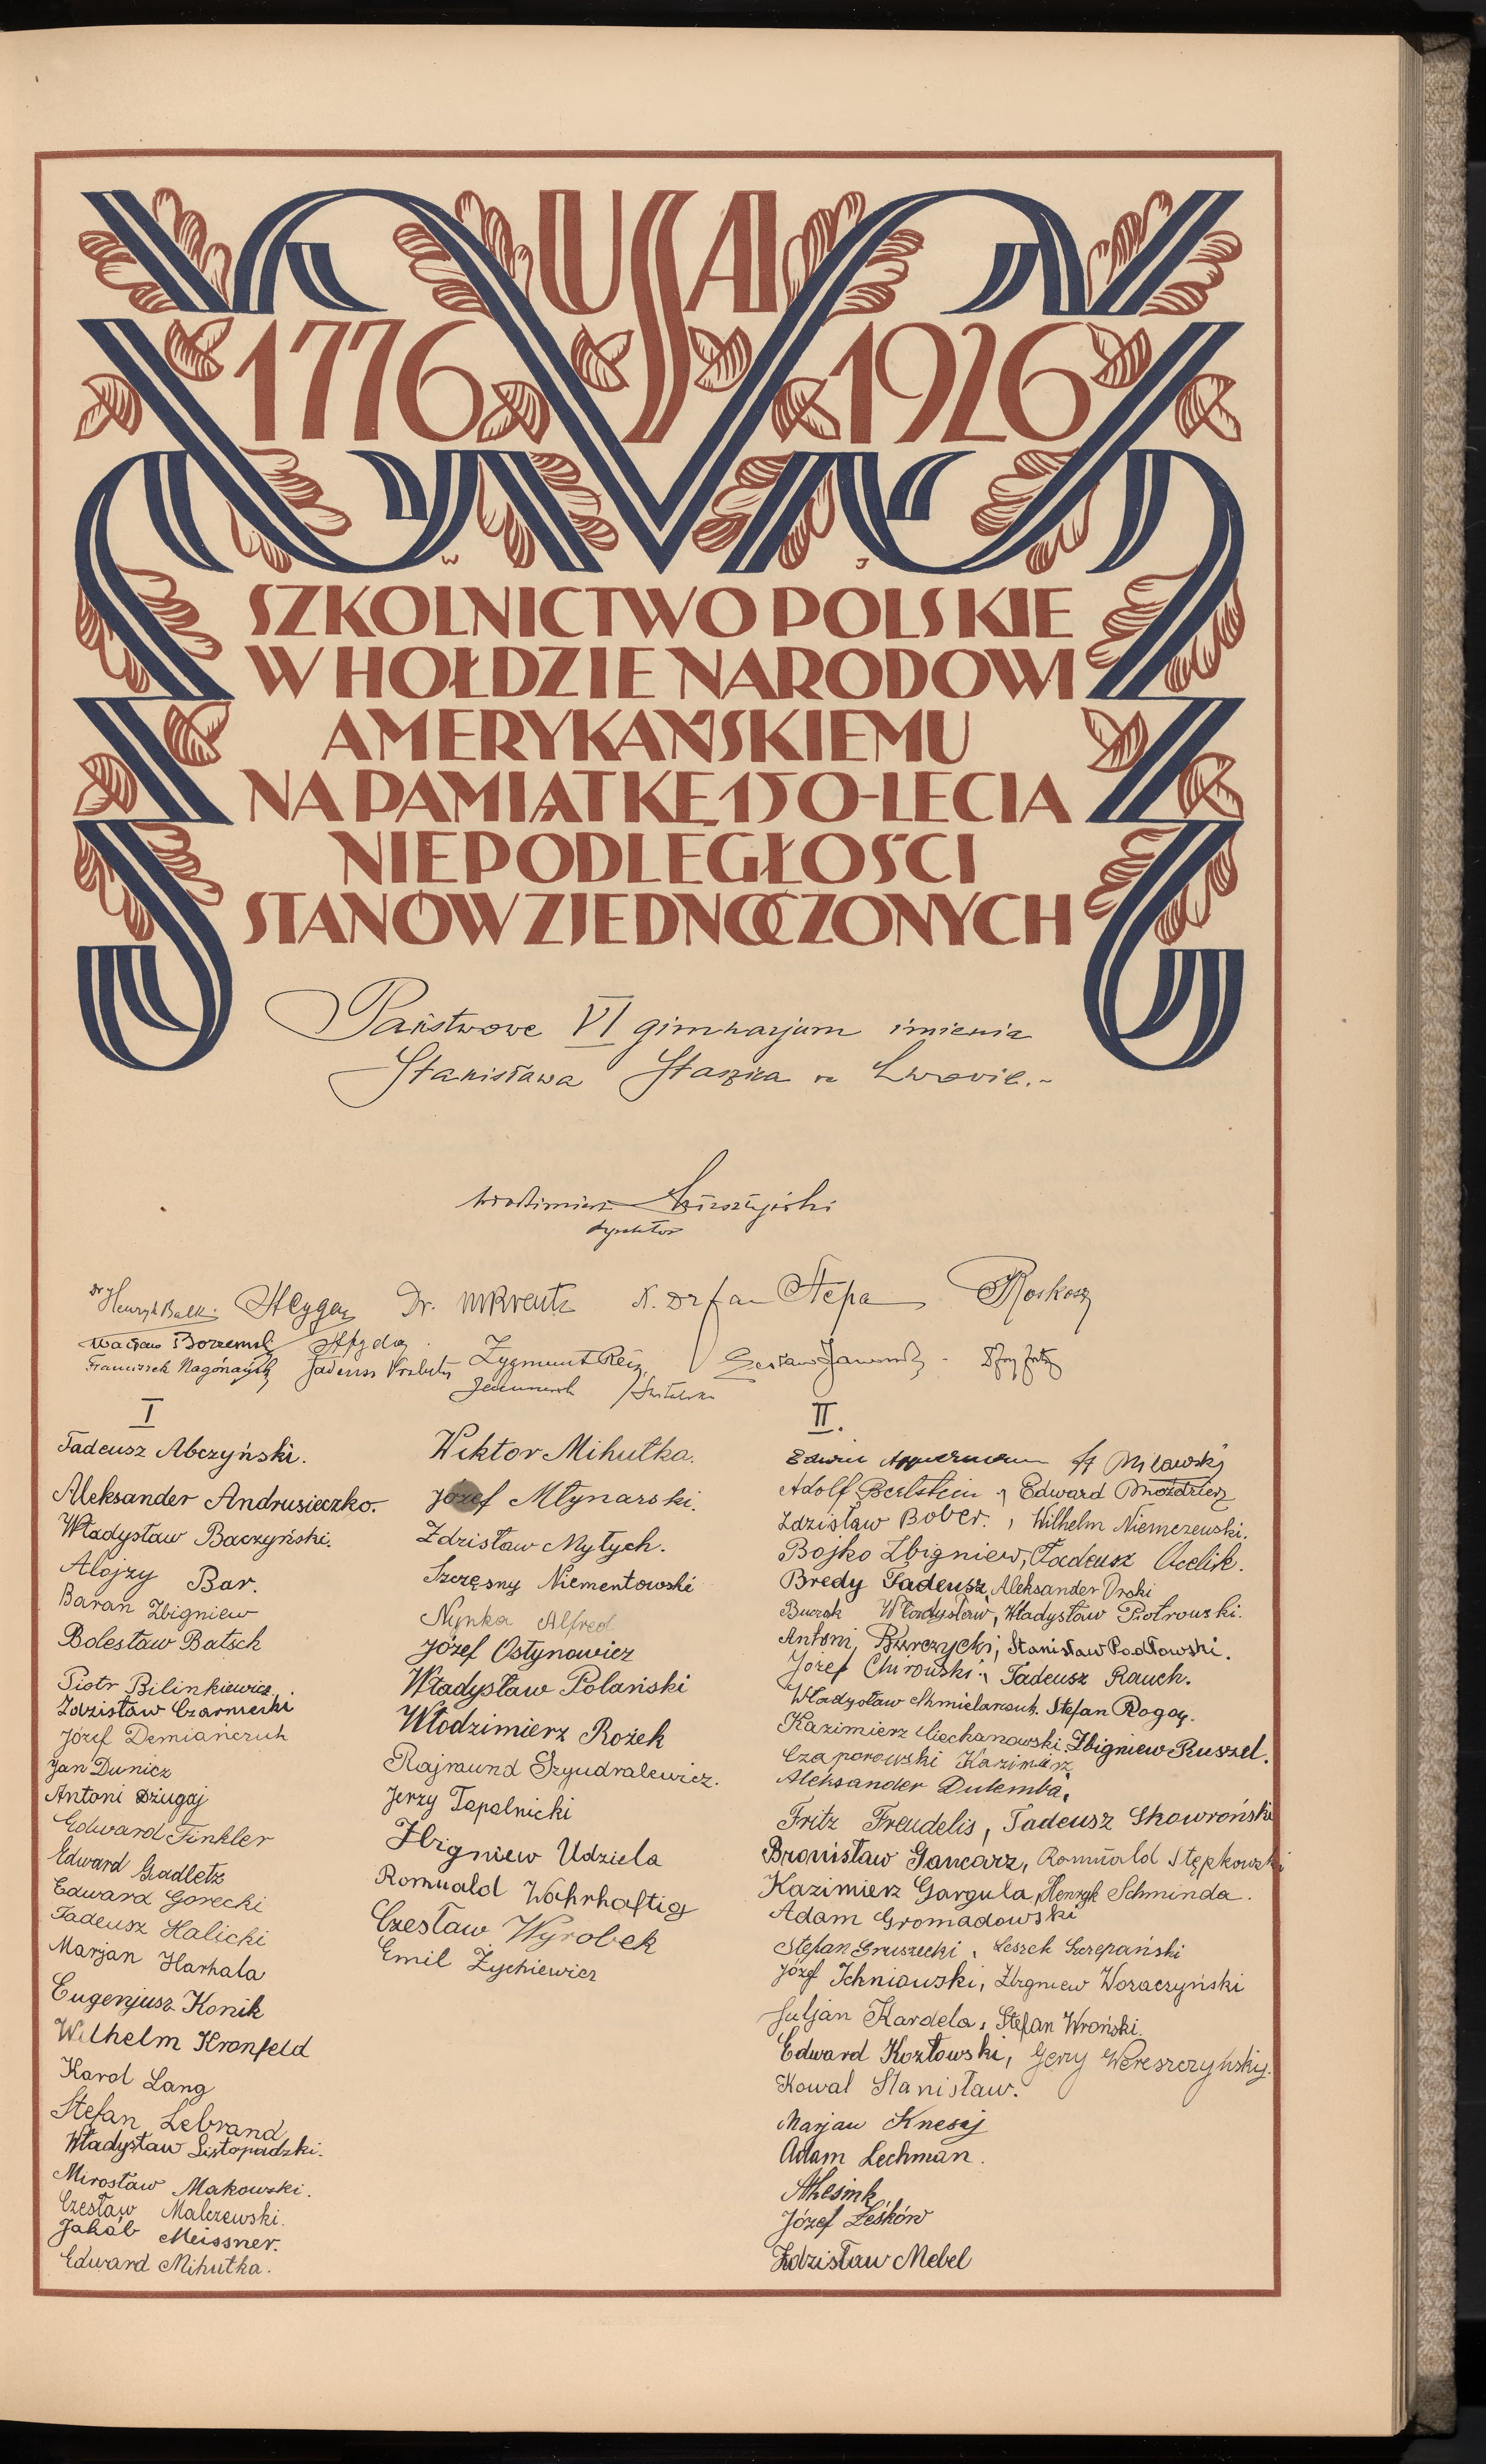 USA
1776 1926
W J
SZKOLNICTWO POLSKIE
W HOŁDZIE NARODOWI
AMERYKAŃSKIEMU
NA PAMIĄTKĘ 150-LECIA
NIEPODLEGŁOŚCI
STANÓW ZJEDNOCZONYCH
Państwowe VI gimnazjum imienia
Stanisława Staszica w Lwowie.~
Włodzimierz
dyrektor
Dr Henryk Balk Dr. MKreutz X. Dr Jan Stepa Roskosz
Wacław Borzemski
Franciszek Tadeusz Zygmunt Reis Czesław Jaworski
I
Tadeusz Abczyński.
Aleksander Andrusieczko.
Władysław Baczyński.
Alojzy Bar.
Baran Zbigniew
Bolesław Batsch
Piotr Bilinkiewicz.
Zdzisław Czarnecki
Józef Demiańczuk
Jan Dunicz
Antoni Dżugaj
Edward Finkler
Edward Gadletz
Edward Gorecki
Tadeusz Halicki
Marjan Harhala
Eugenjusz Konik
Wilhelm Kronfeld
Karol Lang
Stefan Lebrand
Władysław Listopadzki.
Mirosław Makowski.
Czesław Malczewski.
Jakób Meissner.
Edward Mihułka.
Wiktor Mihułka.
Józef Młynarski.
Zdzisław Mytych.
Szczęsny Niementowski
Nynka Alfred
Józef Ostynowicz
Władysław Polański
Włodzimierz Rożek
Rajmund Szyudralewicz.
Jerzy Topolnicki
Zbigniew Udziela
Romuald Wahrhaftig
Czesław Wyrobek
Emil Zychiewicz
II.
Edwin Appermann St Milawski
Adolf Beilstein, Edward Moździerz
Zdzisław Bober., Wilhelm Niemczewski.
Bojko Zbigniew, Tadeusz Ocelik.
Bredy Tadeusz, Aleksander Orski
Burak Władysław, Władysław Piotrowski.
Antoni Burczycki, Stanisław Podłowski.
Józef Chirowski, Tadeusz Rauch.
Władysław Stefan Rogoz.
Kazimierz Ciechanowski, Zbigniew Russel.
Czaporowski Kazimierz
Aleksander Dulemba,
Fritz Freudelis, Tadeusz Skowroński
Bronisław Gancarz, Romuald Stępkowski
Kazimierz Gargula, Henryk Schminda.
Adam Gromadowski
Stefan Gruszecki, Leszek Szczepański
Józef Ichniowski, Zbigniew Woraczyński
Juljan Kardela, Stefan Wroński.
Edward Kozłowski, Jerzy Wereszczyński.
Kowal Stanisław.
Marjan Knesaj
Adam Lechman.
Józef Leśków
Zdzisław Mebel